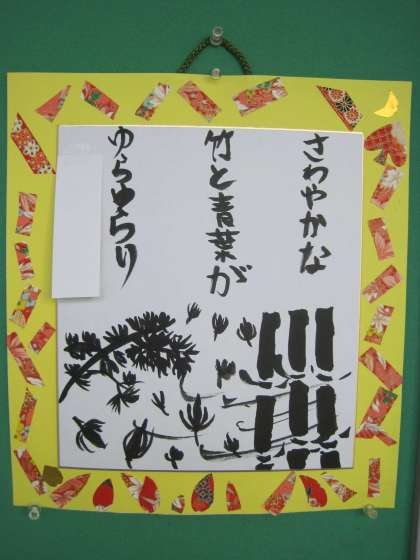 さわやかな
竹と青葉が
ゆらゆらり